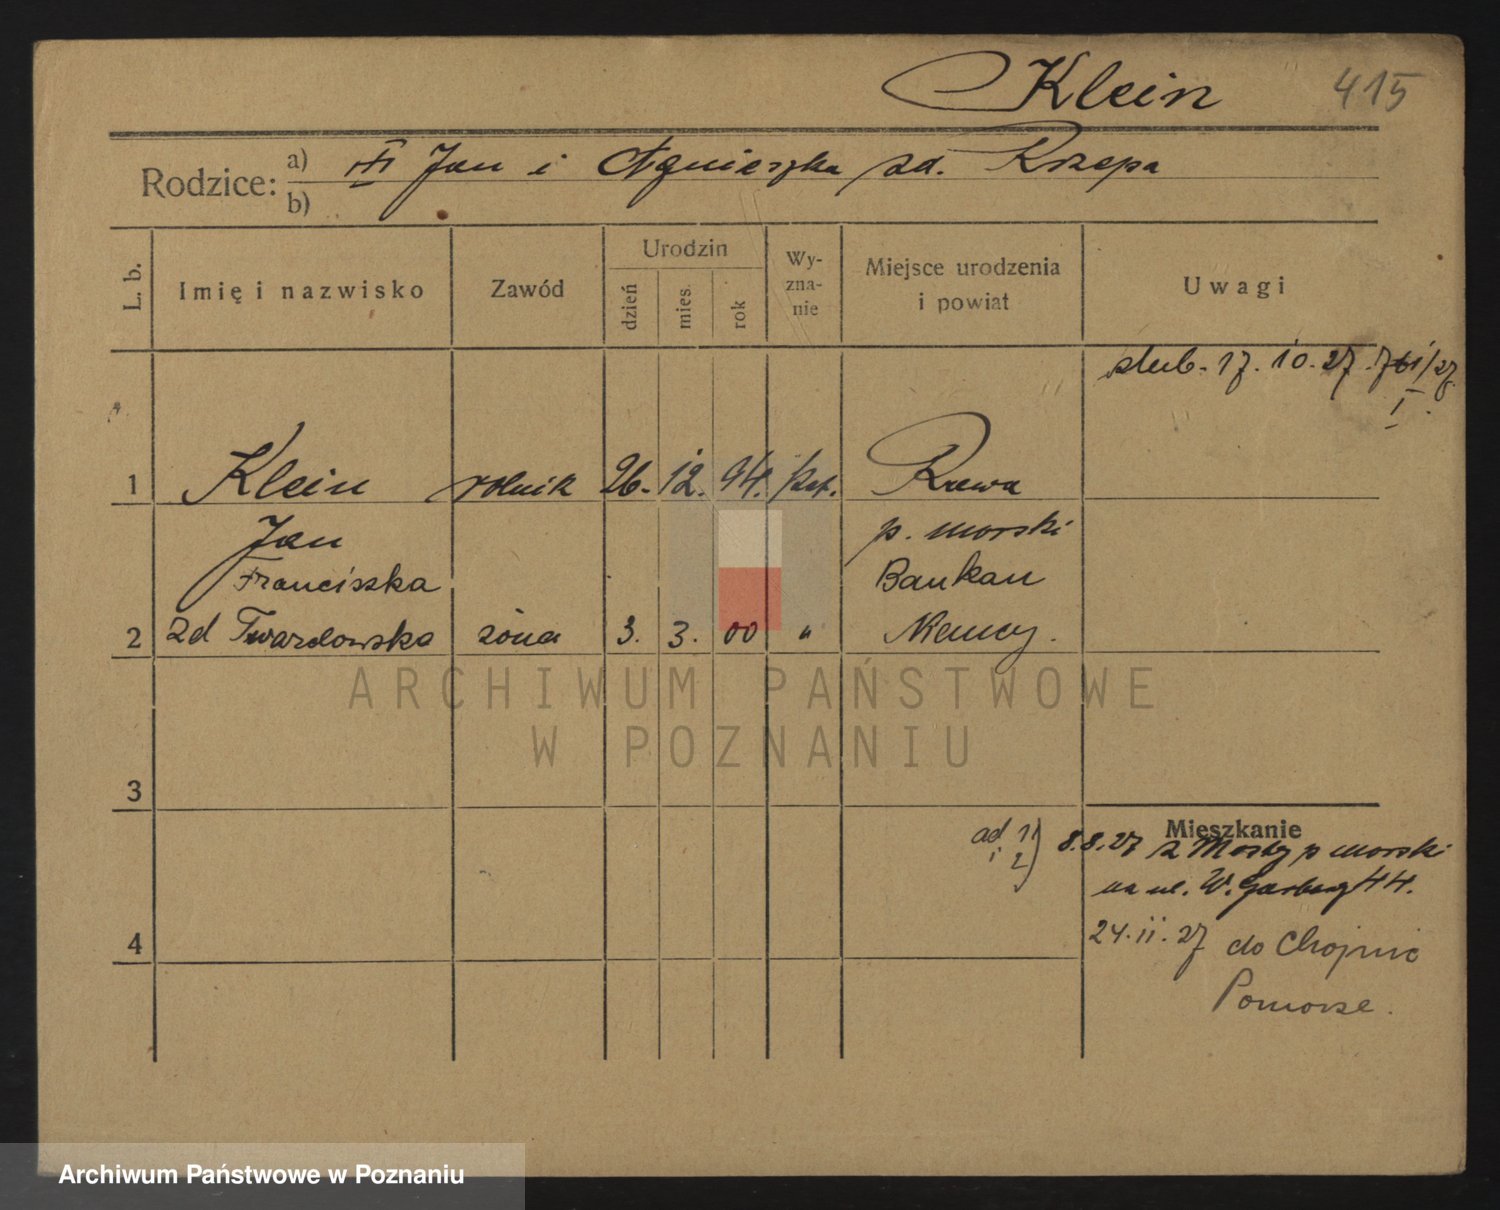 Klein 415
Rodzice: a) Jan i Agnieszka zd. Rzepa
b)
L. b. Imię i nazwisko Zawód Urodzin dzień mies. rok Wy-zna-nie Miejsce urodzenia i powiat Uwagi
ślub. 17. 10. 27. 761/27
I.
1 Klein rolnik 26. 12. 94. kat. Rewa
Jan p. morski
Franciszka Baukau
2 zd Twardowska żona 3. 3. 00 " Niemcy.
ARCHIWUM PAŃSTWOWE
W POZNANIU
3
Mieszkanie
ad 1) i 2) 8.8.27 z Mosty p morski
na ul. W. Garbary 44.
4 24. 11. 27 do Chojnic
Pomorze.
Archiwum Państwowe w Poznaniu